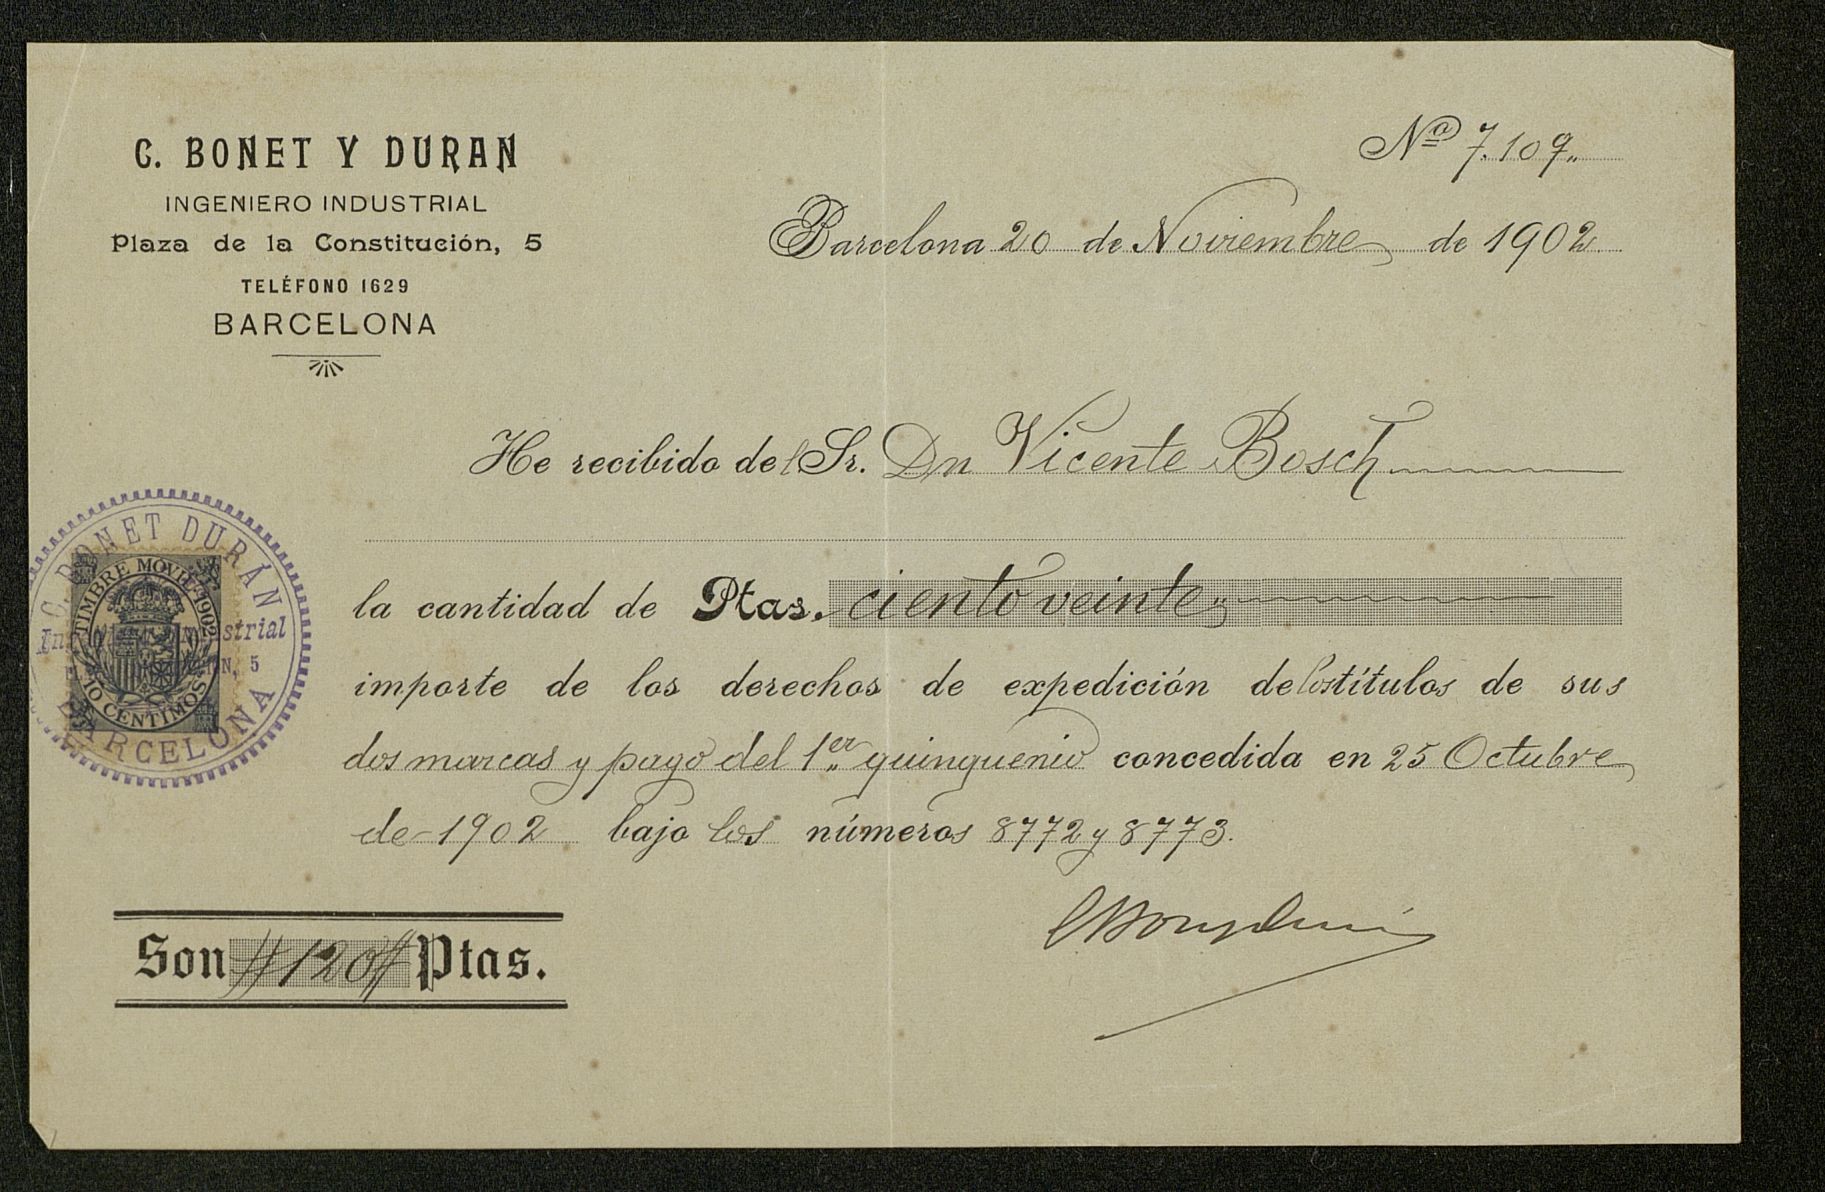 C. BONET Y DURAN
INGENIERO INDUSTRIAL
Plaza de la Constitución, 5
TELÉFONO 1629
BARCELONA
Nº 7.109
Barcelona 20 de Noviembre de 1902
He recibido del Sr. Dn Vicente Bosch
la cantidad de Ptas. ciento veinte
importe de los derechos de expedición de los títulos de sus
dos marcas y pago del 1er quinquenio concedida en 25 Octubre
de 1902 bajo los números 8772 y 8773.
Son 120 Ptas.
C. BONET DURÁN
Industrial
5
BARCELONA
TIMBRE MOVIL 1902
10 CENTIMOS